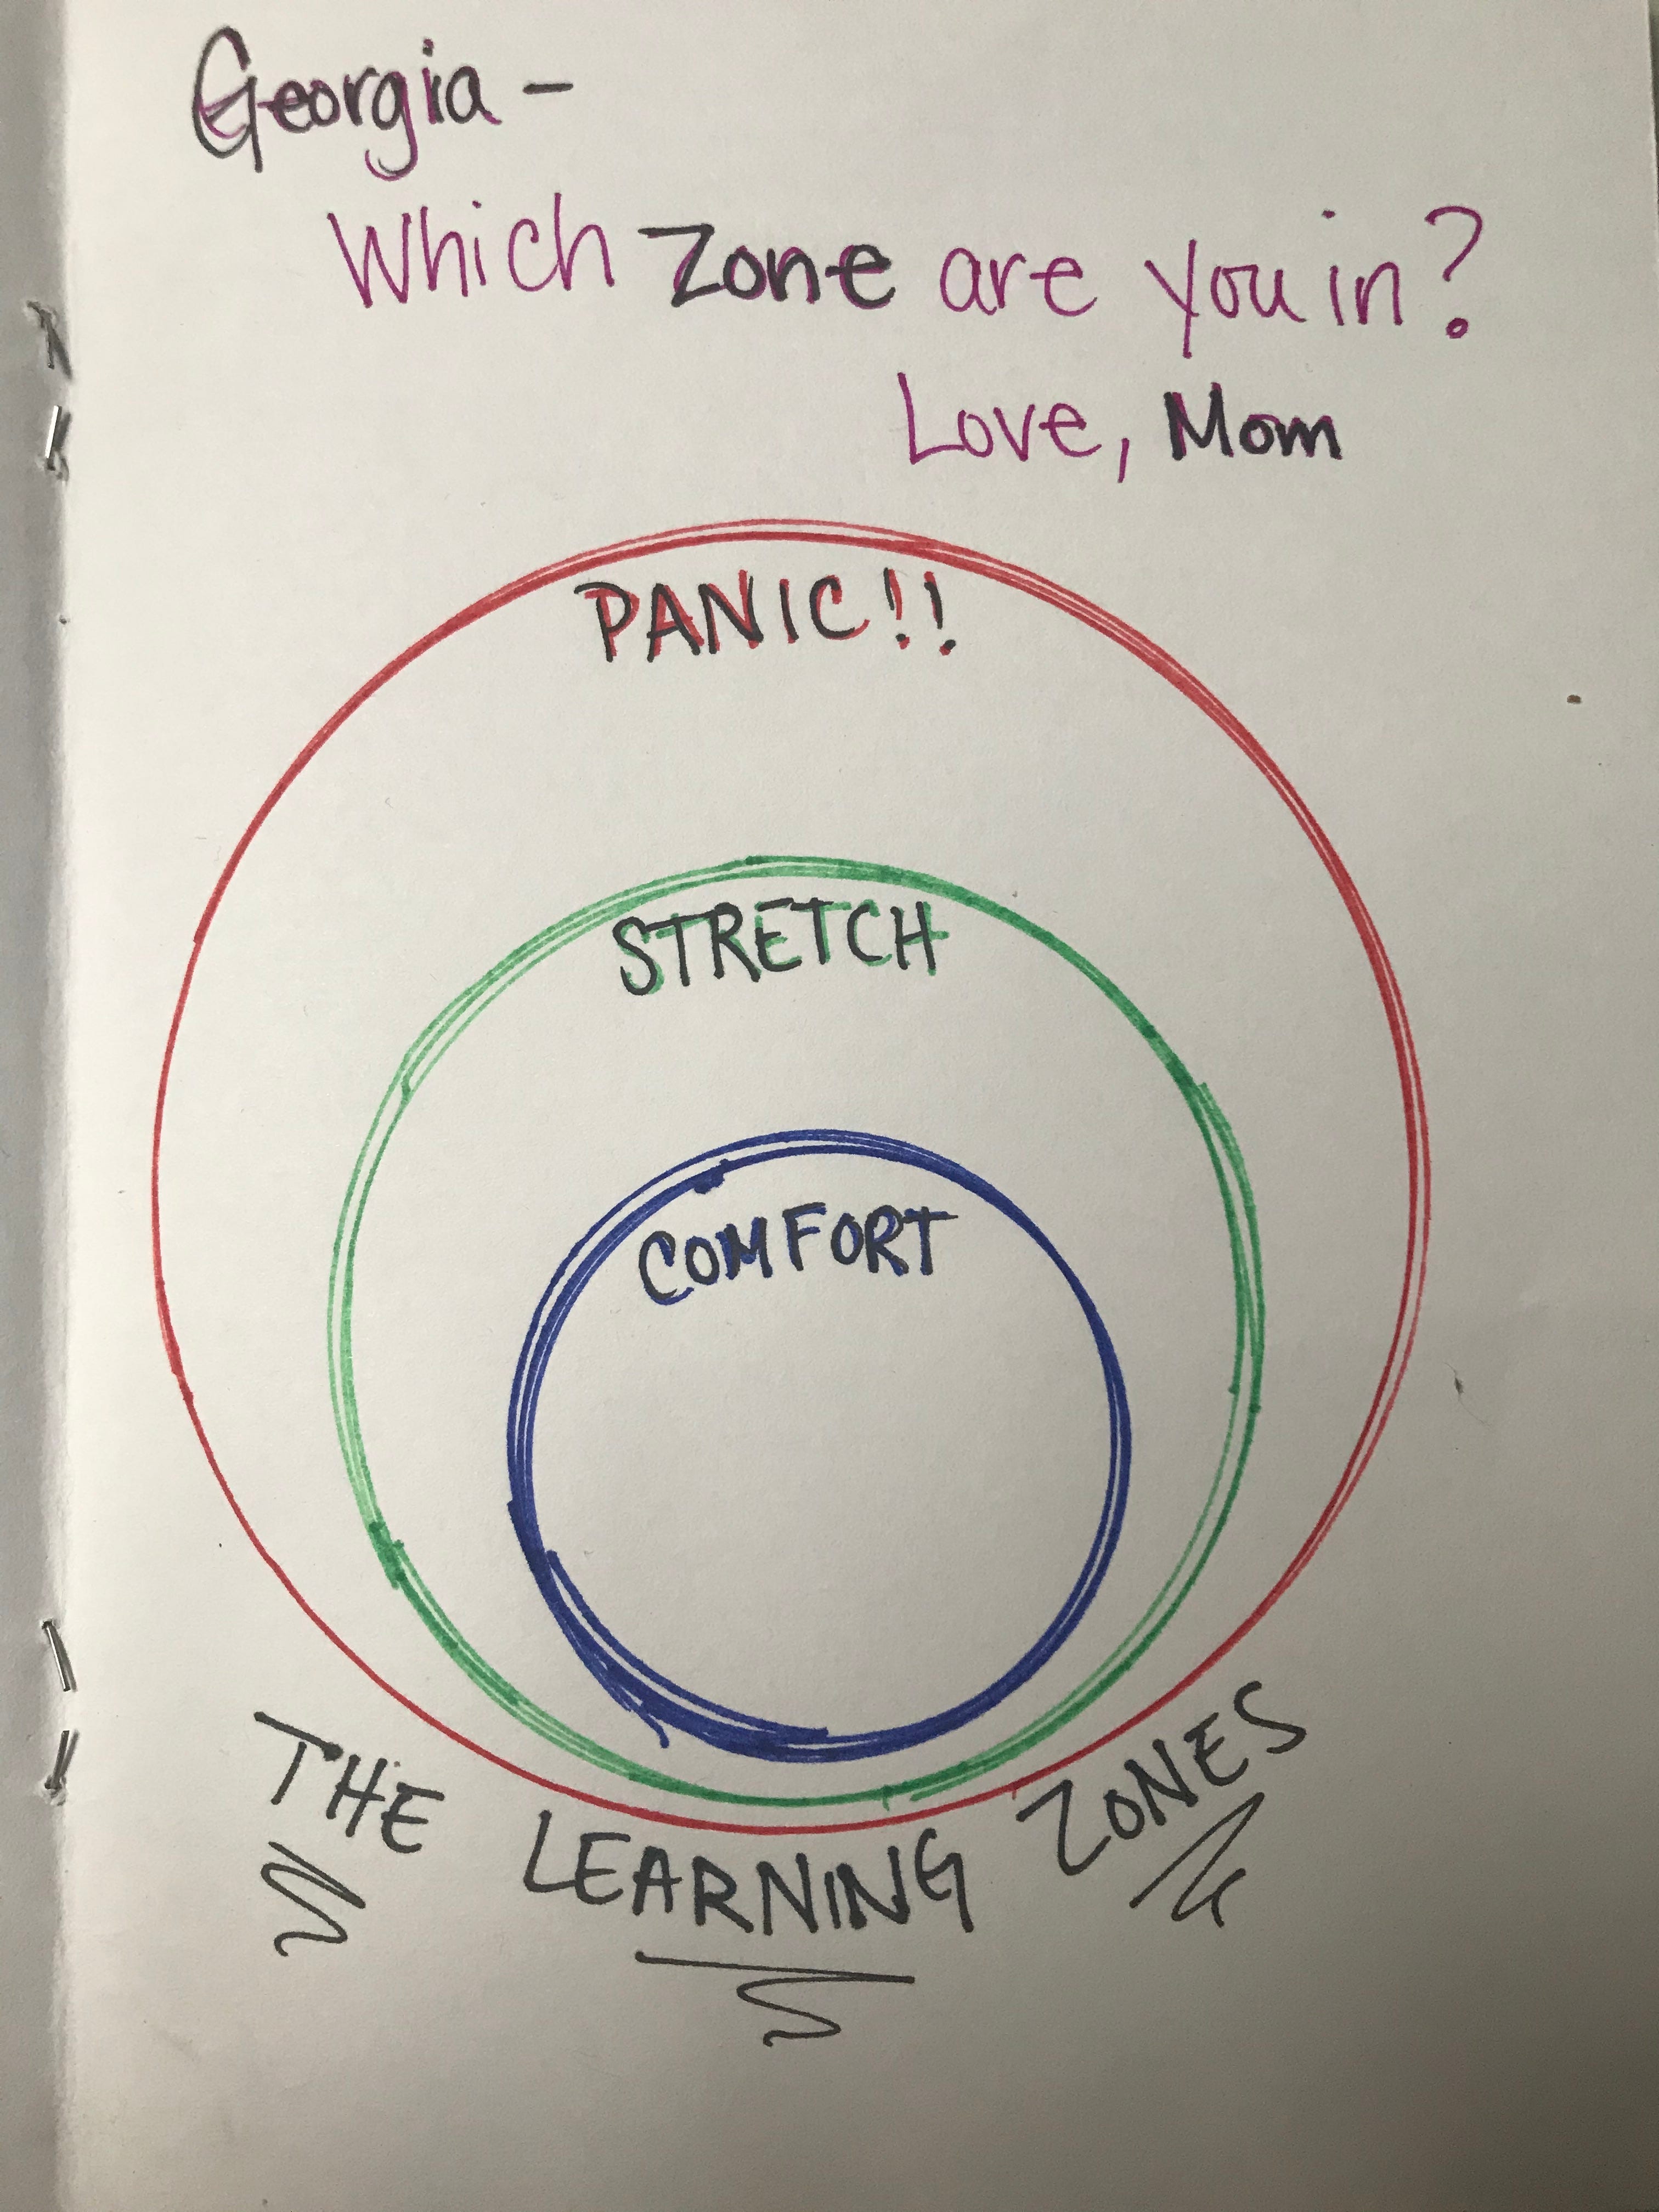 Georgia -
Which Zone are you in?
Love, Mom
PANIC!!
STRETCH
COMFORT
THE LEARNING ZONES